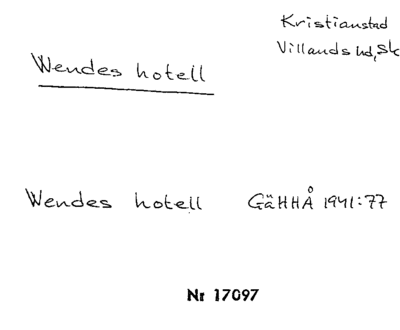 Kristianstad
Villands hd, Sk
Wendes hotell
Wendes hotell GäHHÅ 1941:77
Nr 17097